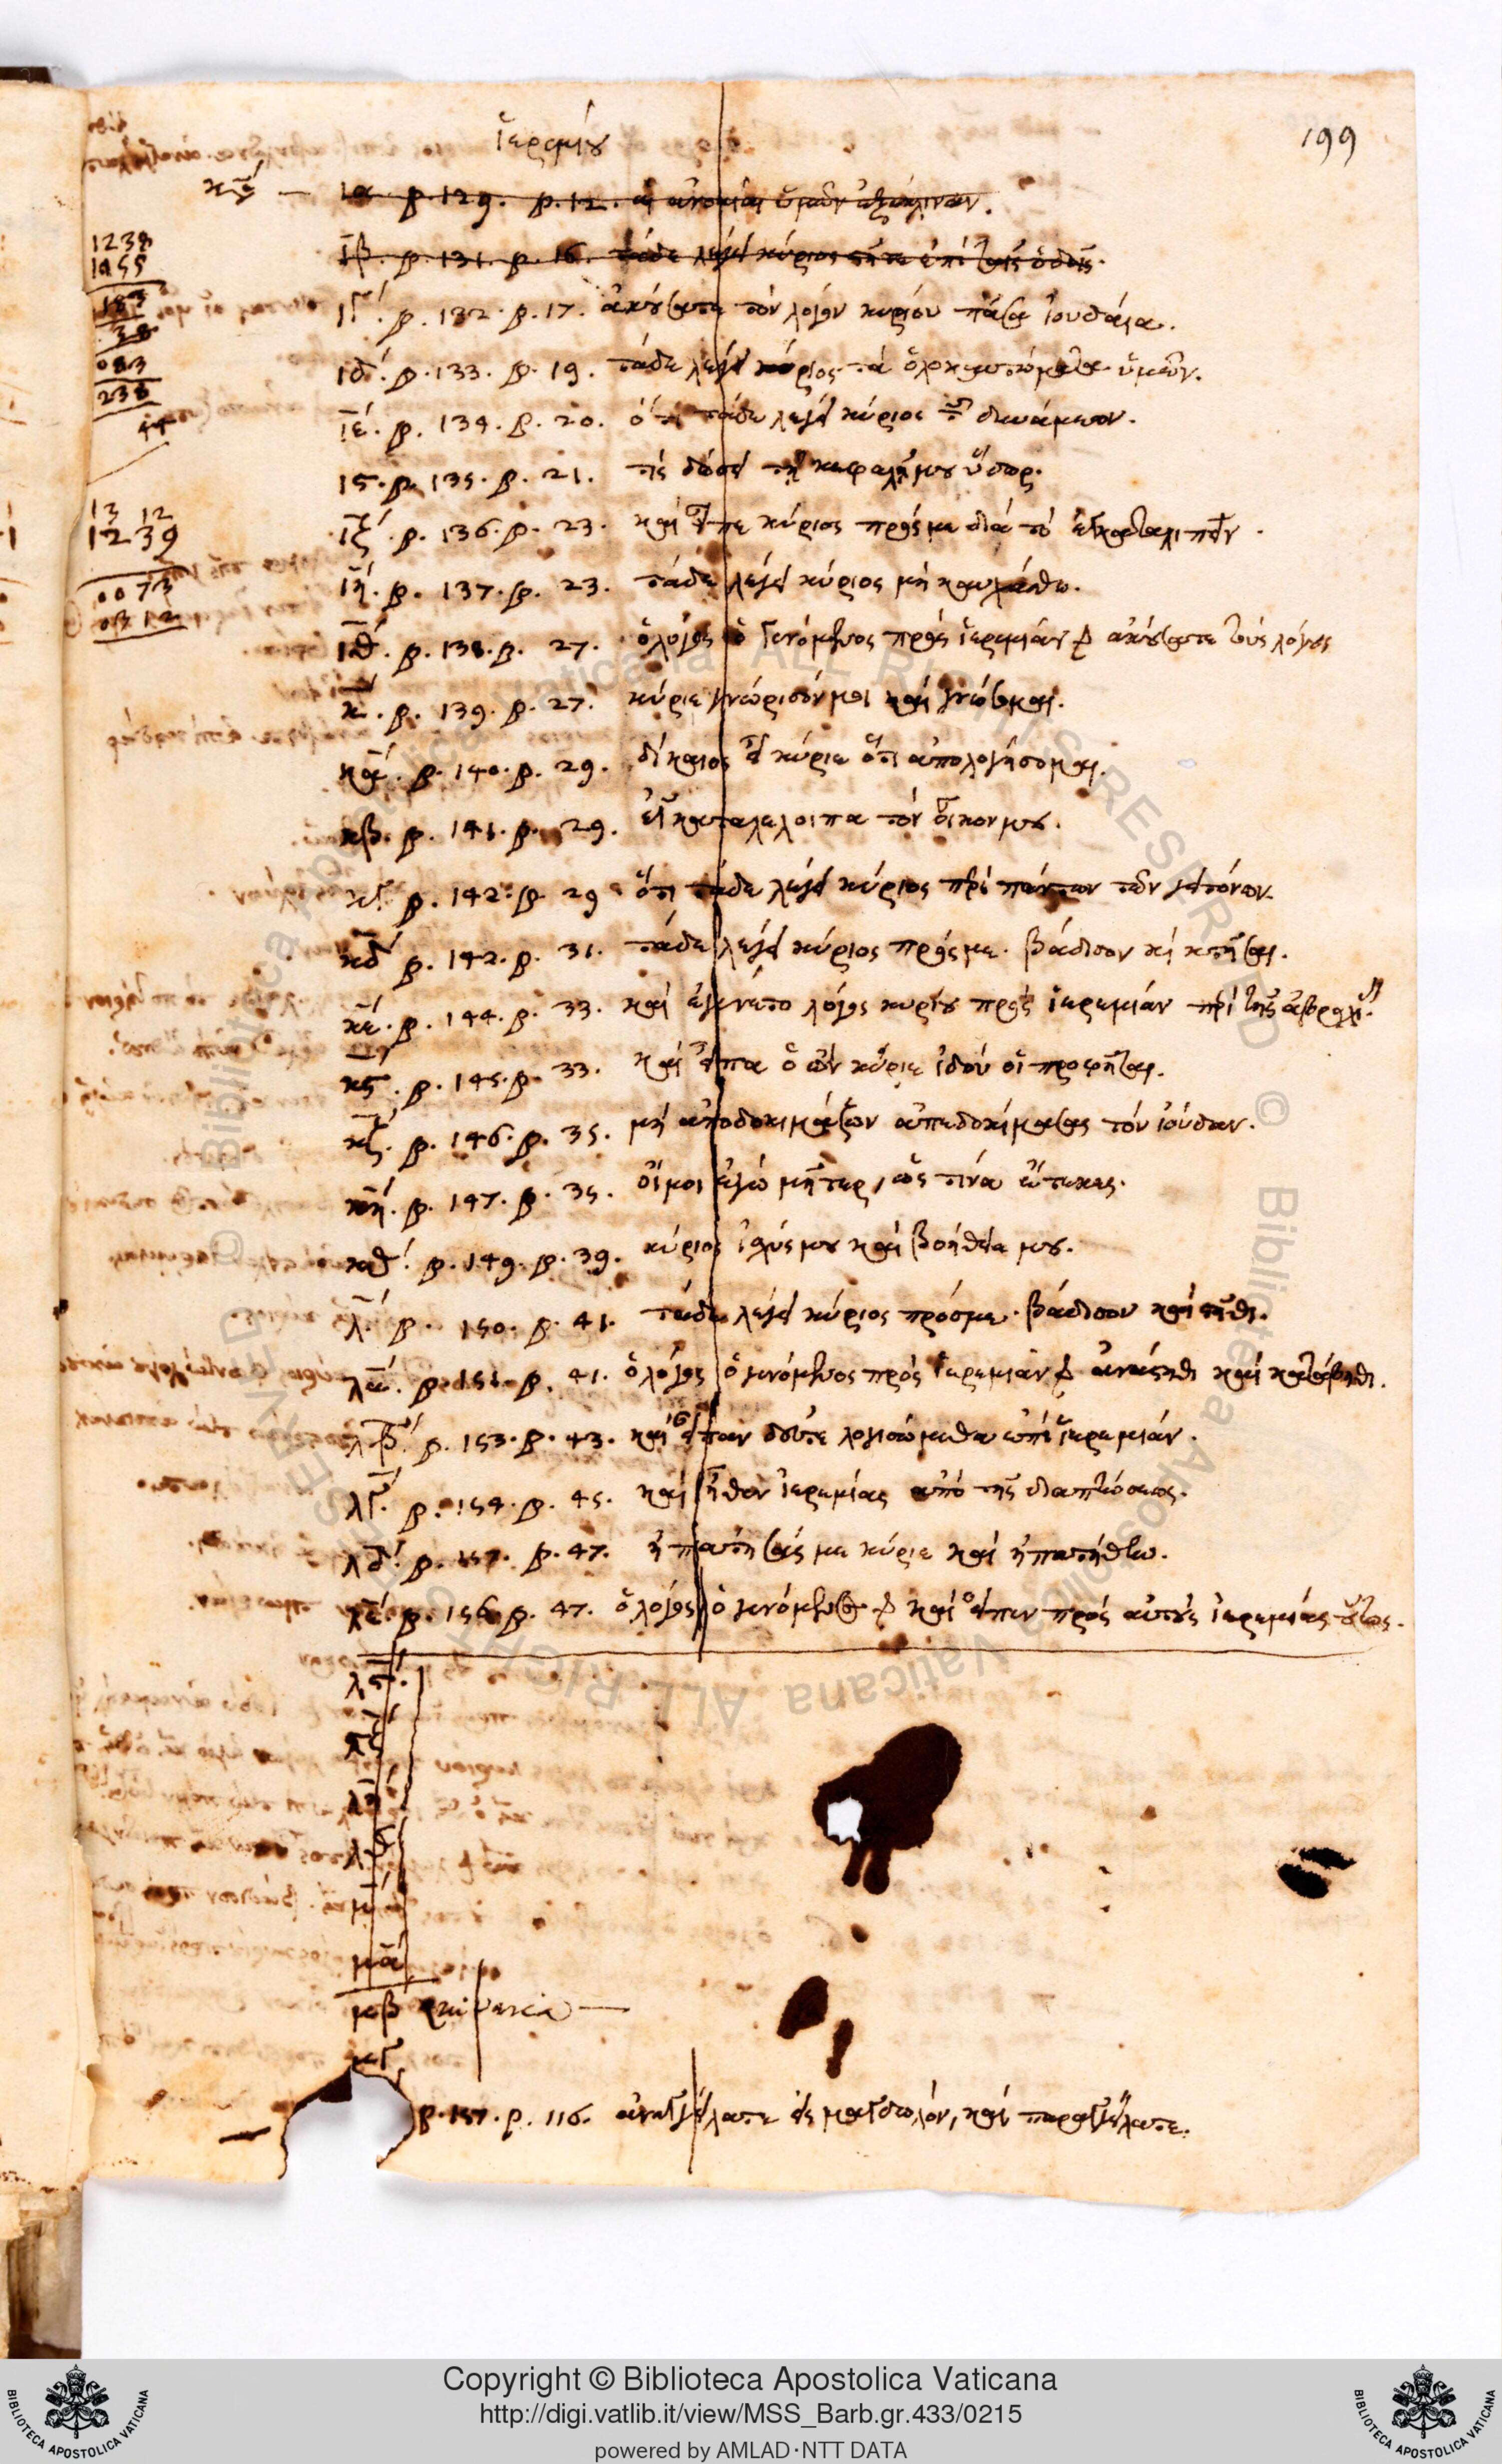 ἱερεμίου
199
κγ́ — ια β. 129. β. 12. αἱ ἀνομίαι ὑμῶν ἐξέκλιναν.
ιβ. β. 131. β. 16. τάδε λέγει κύριος στῆτε ἐπὶ ταῖς ὁδοῖς.
1238
1955
183
38
083
238
44
ιγ́. β. 132. β. 17. ἀκούσατε τὸν λόγον κυρίου πᾶσα ἰουδαία.
ιδ́. β. 133. β. 19. τάδε λέγει κύριος τὰ ὁλοκαυτώματα ὑμῶν.
ιέ. β. 134. β. 20. ὅτι τάδε λέγει κύριος τῶν δυνάμεων.
ις. β. 135. β. 21. τίς δώσει τῇ κεφαλῇ μου ὕδωρ.
13 12
1239
0073
ιζ́. β. 136. β. 23. καὶ εἶπε κύριος πρός με διὰ τὸ ἐγκαταλιπεῖν.
ιή. β. 137. β. 23. τάδε λέγει κύριος μὴ καυχάσθω.
ιθ́. β. 138. β. 27. ὁ λόγος ὁ γενόμενος πρὸς ἱερεμίαν ἀκούσατε τοὺς λόγους
κ́. β. 139. β. 27. κύριε γνώρισόν μοι καὶ γνώσομαι.
κά. β. 140. β. 29. δίκαιος εἶ κύριε ὅτι ἀπολογήσομαι.
κβ. β. 141. β. 29. ἐγκαταλέλοιπα τὸν οἶκον μου.
κγ β. 142. β. 29 ὅτι τάδε λέγει κύριος περὶ πάντων τῶν γειτόνων.
κδ́ β. 142. β. 31. τάδε λέγει κύριος πρός με. βάδισον κὶ κτῆσαι.
κέ. β. 144. β. 33. καὶ ἐγένετο λόγος κυρίου πρὸς ἱερεμίαν περὶ τῆς ἀβροχίας.
κς. β. 145. β. 33. καὶ εἶπα ὁ ὢν κύριε ἰδοὺ οἱ προφῆται.
κζ́. β. 146. β. 35. μὴ ἀποδοκιμάζων ἀπεδοκίμασας τὸν ἰούδαν.
κή. β. 147. β. 35. οἴμοι ἐγὼ μῆτερ, ὡς τίνα ἔτεκες.
κθ́. β. 149. β. 39. κύριος ἰσχύς μου καὶ βοήθεια μου.
λ́. β. 150. β. 41. τάδε λέγει κύριος πρός με. βάδισον καὶ στῆθι.
λά. β. 151. β. 41. ὁ λόγος ὁ γενόμενος πρὸς ἱερεμίαν ἀνάστηθι καὶ κατάβηθι.
λβ́. β. 153. β. 43. καὶ εἶπαν δεῦτε λογισώμεθα ἐπὶ ἱερεμίαν.
λγ́. β. 154. β. 45. καὶ ἦλθεν ἱερεμίας ἀπὸ τῆς διαπτώσεως.
λδ́. β. 157. β. 47. ἠπάτησάς με κύριε καὶ ἠπατήθην.
λέ. β. 156 β. 47. ὁ λόγος ὁ γενόμενος καὶ εἶπεν πρὸς αὐτοὺς ἱερεμίας οὕτως.
λς́.
λζ́
λή
λθ́
μ́
μά
μβ
μγ
β. 157. β. 116. ἀναγγείλατε εἰς μάγδωλον, καὶ παραγγείλατε.
Copyright © Biblioteca Apostolica Vaticana
http://digi.vatlib.it/view/MSS_Barb.gr.433/0215
powered by AMLAD·NTT DATA